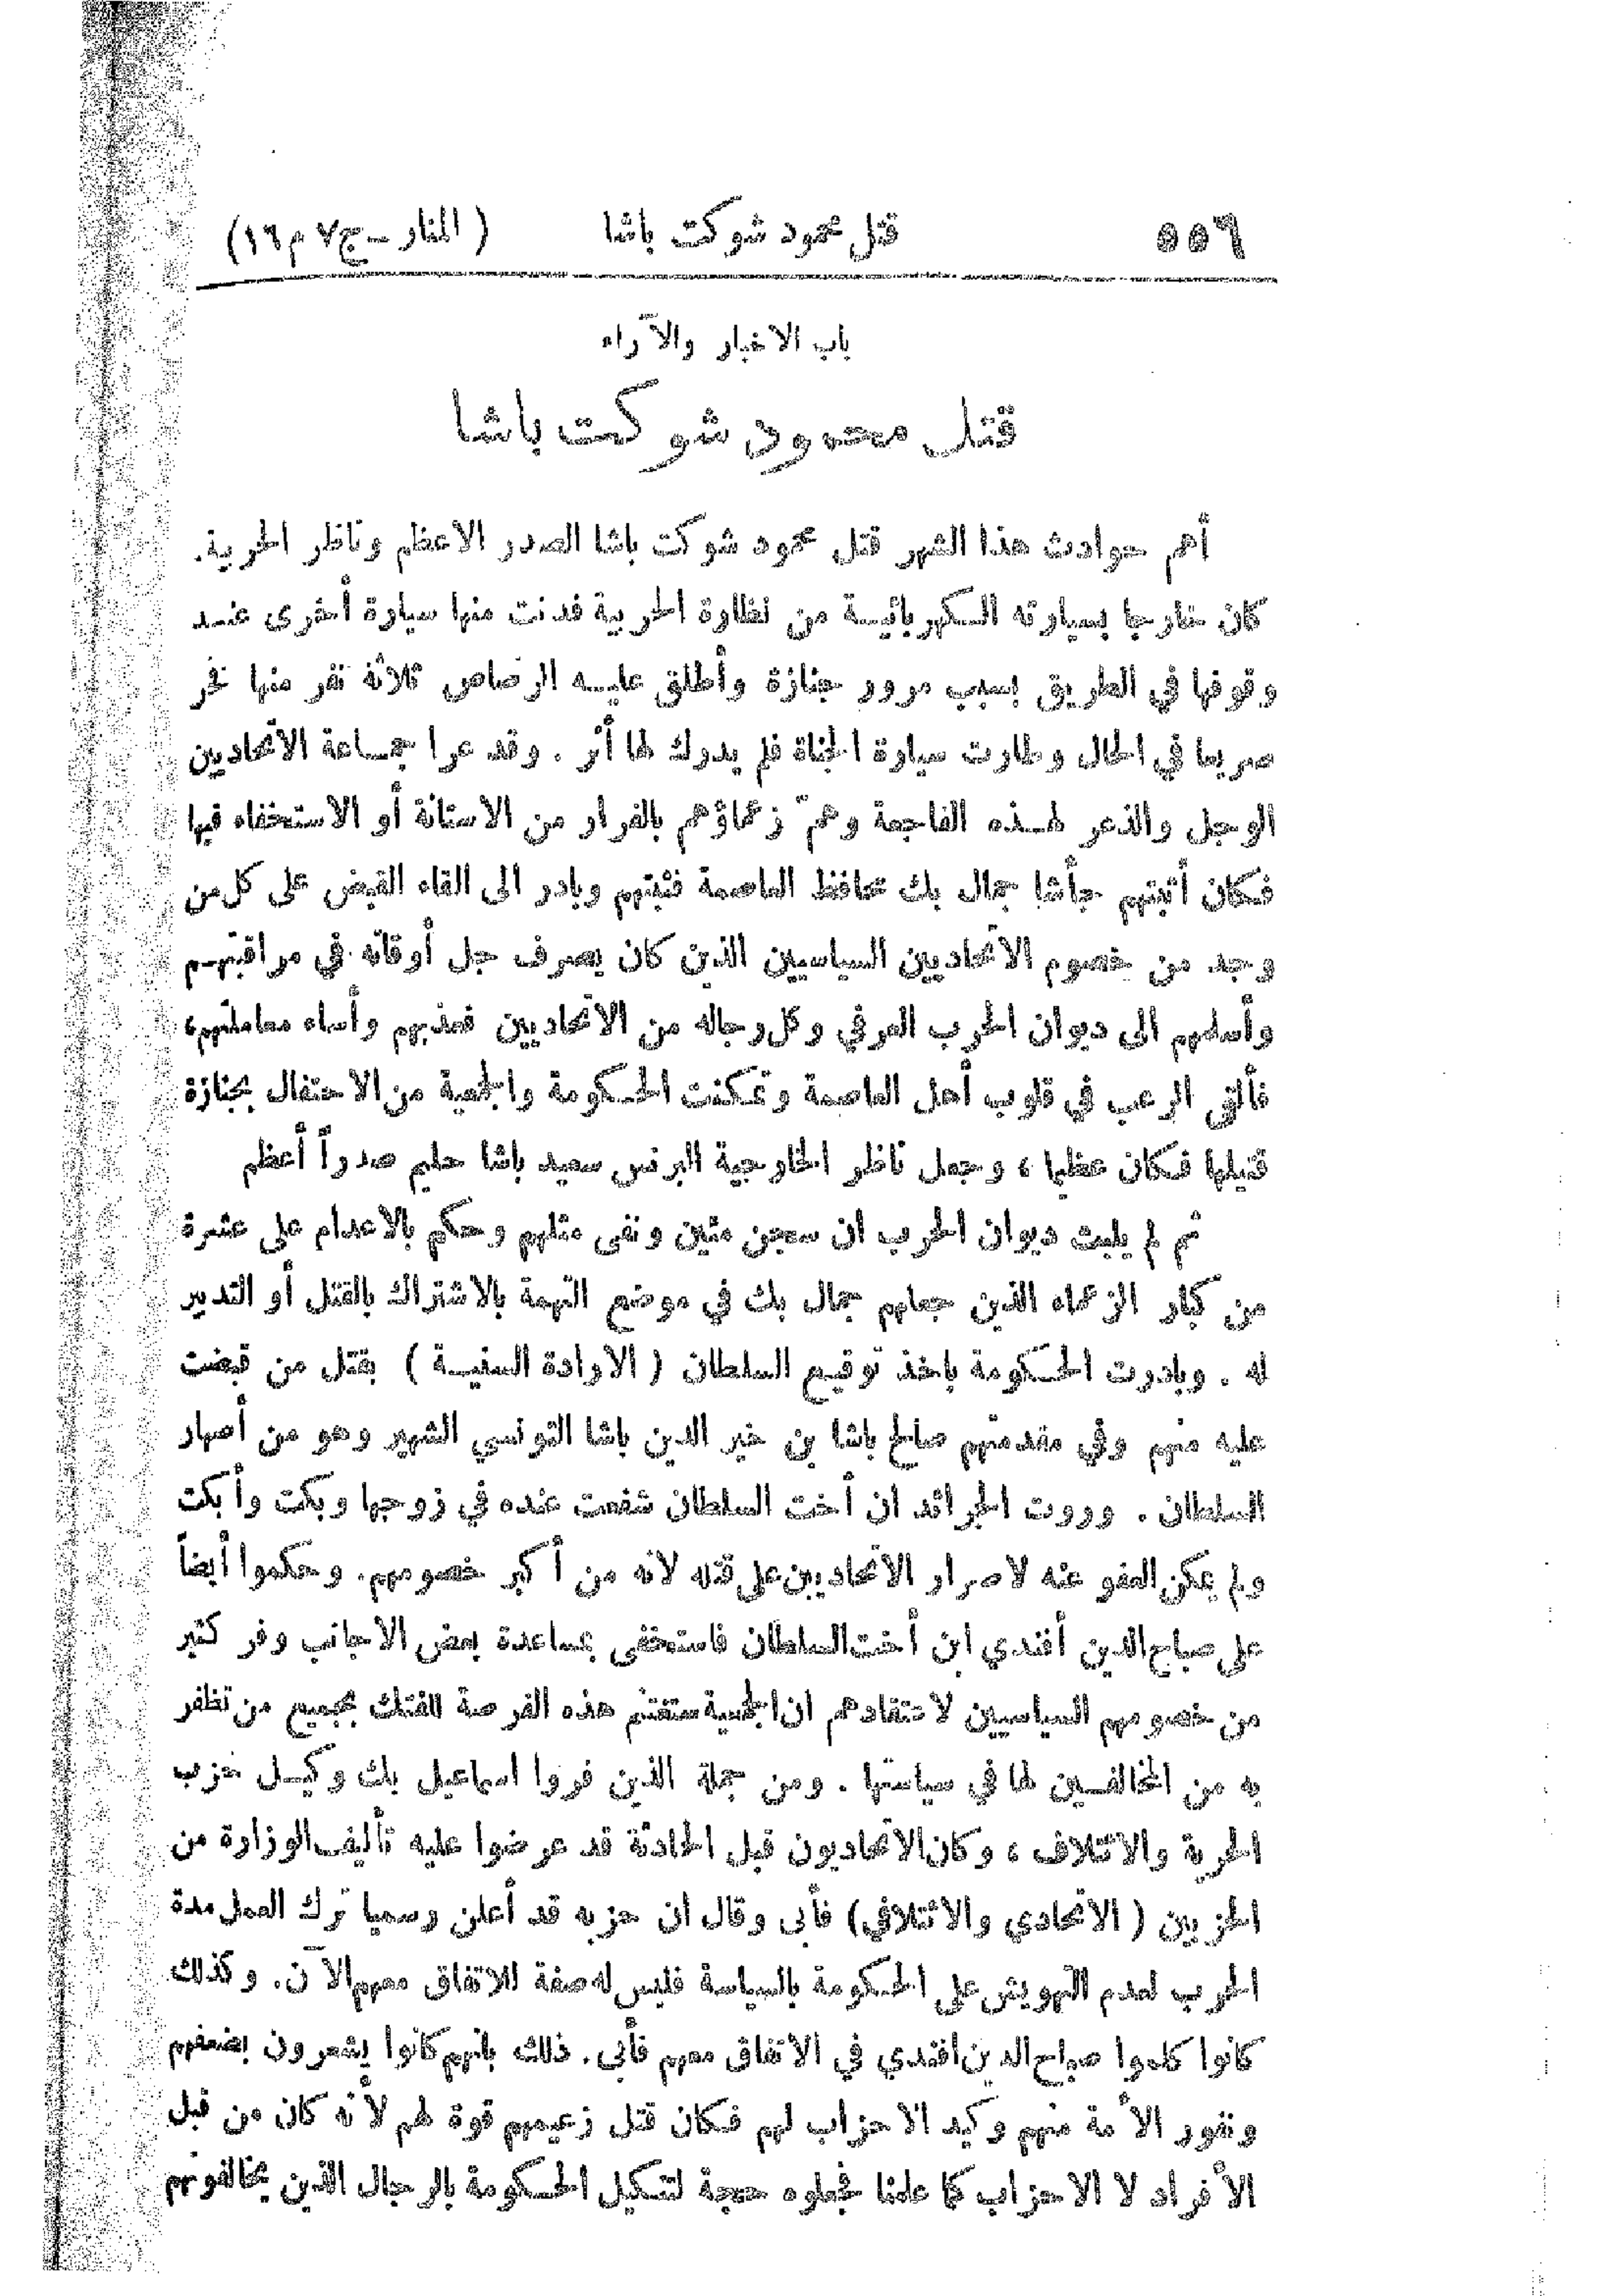 ٥٥٦ قتل محمود شوكت باشا ( المنار – ج ٧ م ١٦)
باب الاخبار والآراء
قتل محمود شوكت باشا
أهم حوادث هذا الشهر قتل محمود شوكت باشا الصدر الاعظم وناظر الحربية.
كان خارجا بسيارته الكهربائية من نظارة الحربية فدنت منها سيارة أخرى عند
وقوفها في الطريق بسبب مرور جنازة وأطلق عليه الرصاص ثلاثة نفر منها فخر
صريعا في الحال وطارت سيارة الجناة فلم يدرك لها أثر . وقد عرا جماعة الاتحاديين
الوجل والذعر لهذه الفاجعة وهمّ زعماؤهم بالفرار من الاستانة أو الاستخفاء فيها
فكان أثبتهم جأشا جمال بك محافظ العاصمة فثبتهم وبادر الى القاء القبض على كل من
وجد من خصوم الاتحاديين السياسيين الذين كان يصرف جل أوقاته في مراقبتهم
وأسلمهم الى ديوان الحرب العرفي وكل رجاله من الاتحاديين فعذبهم وأساء معاملتهم،
فألقي الرعب في قلوب أهل العاصمة وتمكنت الحكومة والجمعية من الاحتفال بجنازة
قتيلها فكان عظيما ، وجعل ناظر الخارجية البرنس سعيد باشا حليم صدراً أعظم
ثم لم يلبث ديوان الحرب ان سجن مئين ونفى مثلهم وحكم بالاعدام على عشرة
من كبار الزعماء الذين جعلهم جمال بك في موضع التهمة بالاشتراك بالقتل أو التدبير
له . وبادرت الحكومة باخذ توقيع السلطان ( الارادة السنية ) بقتل من قبضت
عليه منهم وفي مقدمتهم صالح باشا بن خير الدين باشا التونسي الشهير وهو من أصهار
السلطان . وروت الجرائد ان أخت السلطان شفعت عنده في زوجها وبكت وأبكت
ولم يمكن العفو عنه لاصرار الاتحاديين على قتله لانه من أكبر خصومهم. وحكموا أيضاً
على صباح الدين أفندي ابن أخت السلطان فاستخفى بمساعدة بعض الاجانب وفر كثير
من خصومهم السياسيين لاعتقادهم ان الجمعية ستغتنم هذه الفرصة للفتك بجميع من تظفر
به من المخالفين لها في سياستها . ومن جملة الذين فروا اسماعيل بك وكيل حزب
الحرية والائتلاف ، وكان الاتحاديون قبل الحادثة قد عرضوا عليه تأليف الوزارة من
الحزبين ( الاتحادي والائتلافي) فأبى وقال ان حزبه قد أعلن رسميا ترك العمل مدة
الحرب لعدم التهويش على الحكومة بالسياسة فليس له صفة للاتفاق معهم الآن. وكذلك
كانوا كلموا صباح الدين افندي في الاتفاق معهم فأبى. ذلك بانهم كانوا يشعرون بضعفهم
ونفور الأمة منهم وكيد الاحزاب لهم فكان قتل زعيمهم قوة لهم لأنه كان من قبل
الأفراد لا الاحزاب كما علمنا فجعلوه حجة لتشكيل الحكومة بالرجال الذين يخالفونهم